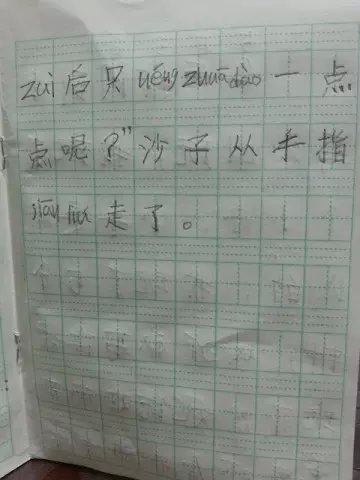 zuì后只néng zhuā dào一点
点呢？”沙子从手指
jiān liú走了。